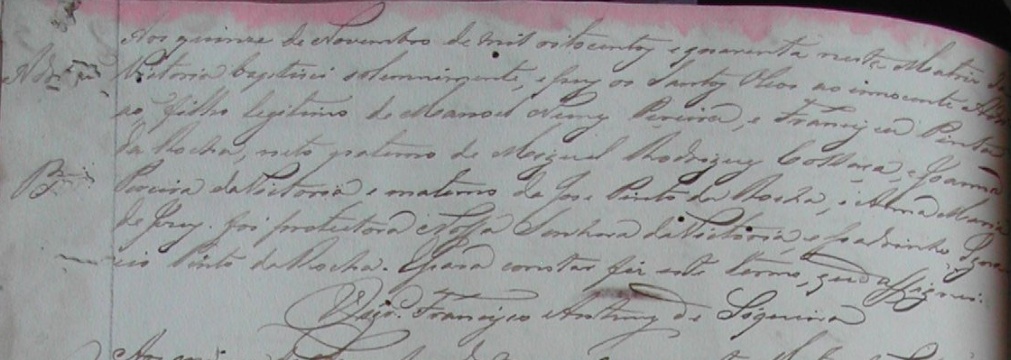 Aos quinze de Novembro de mil oitocentos e quarenta nesta Matriz da
Victoria baptisei solemnimente, e puz os Santos Oleos ao innocente Adri
ao filho legitimo de Manoel Nunes Pereira, e Francisca Pinta
da Rocha, neto paterno de Miguel Rodrigues, e Joanna
Pereira da Victoria e materno de Jose Pinto da Rocha, e Anna Maria
de Jesus. foi protectora Nossa Senhora da Victoria, e Padrinho Igna
cio Pinto da Rocha. E para constar fiz este termo, que assignei.
Vigr.º Francisco Antunes de Siqueira